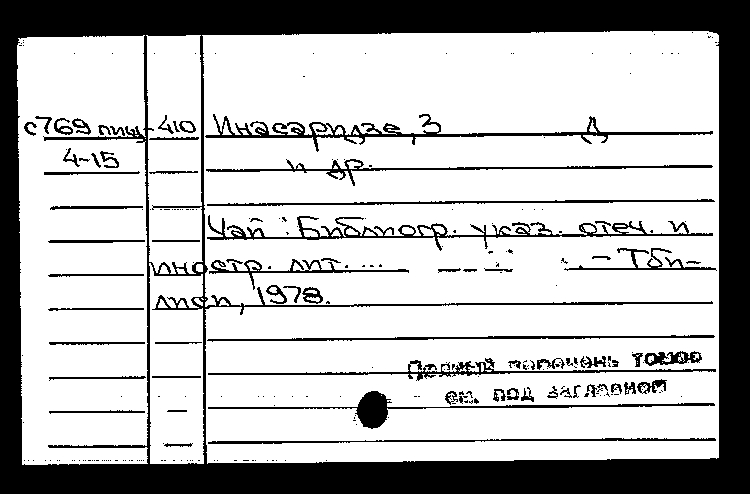 с769 пищ-410 Инасаридзе, З Д
4-15 и др.
Чай : Библиогр. указ. отеч. и
иностр. лит. ... - Тби-
лиси, 1978.
Полный перечень томов
см. под заглавной